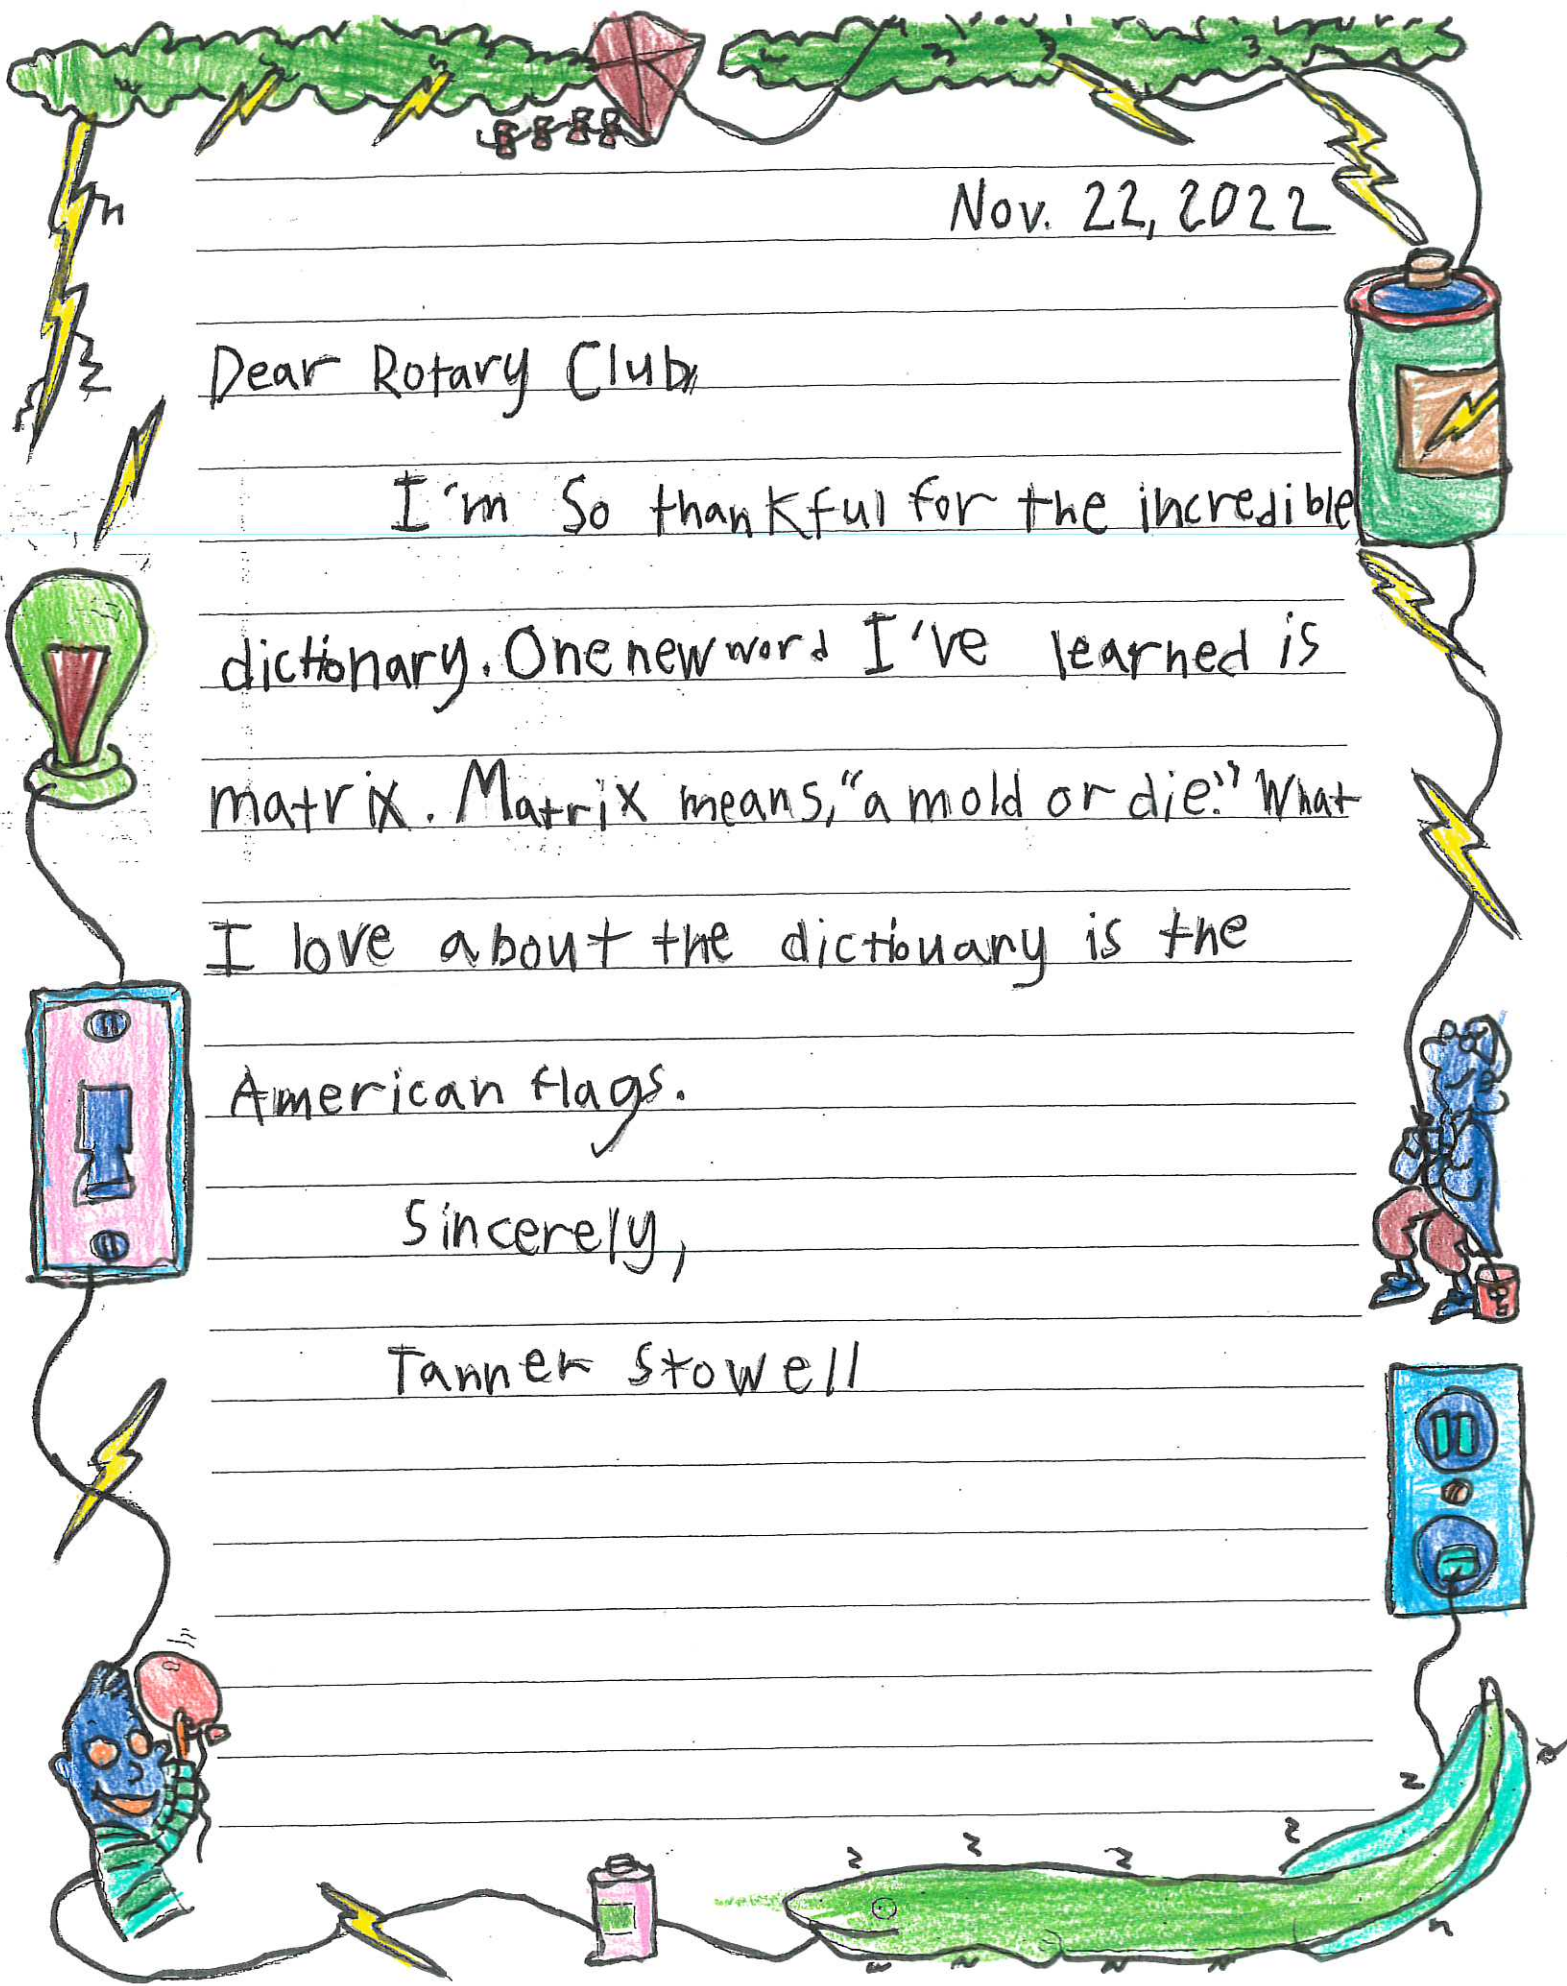 Nov. 22, 2022
Dear Rotary Club,
I'm so thankful for the incredible
dictionary. One new word I've learned is
matrix. Matrix means, "a mold or die." What
I love about the dictiouary is the
American flags.
Sincerely,
Tanner Stowell